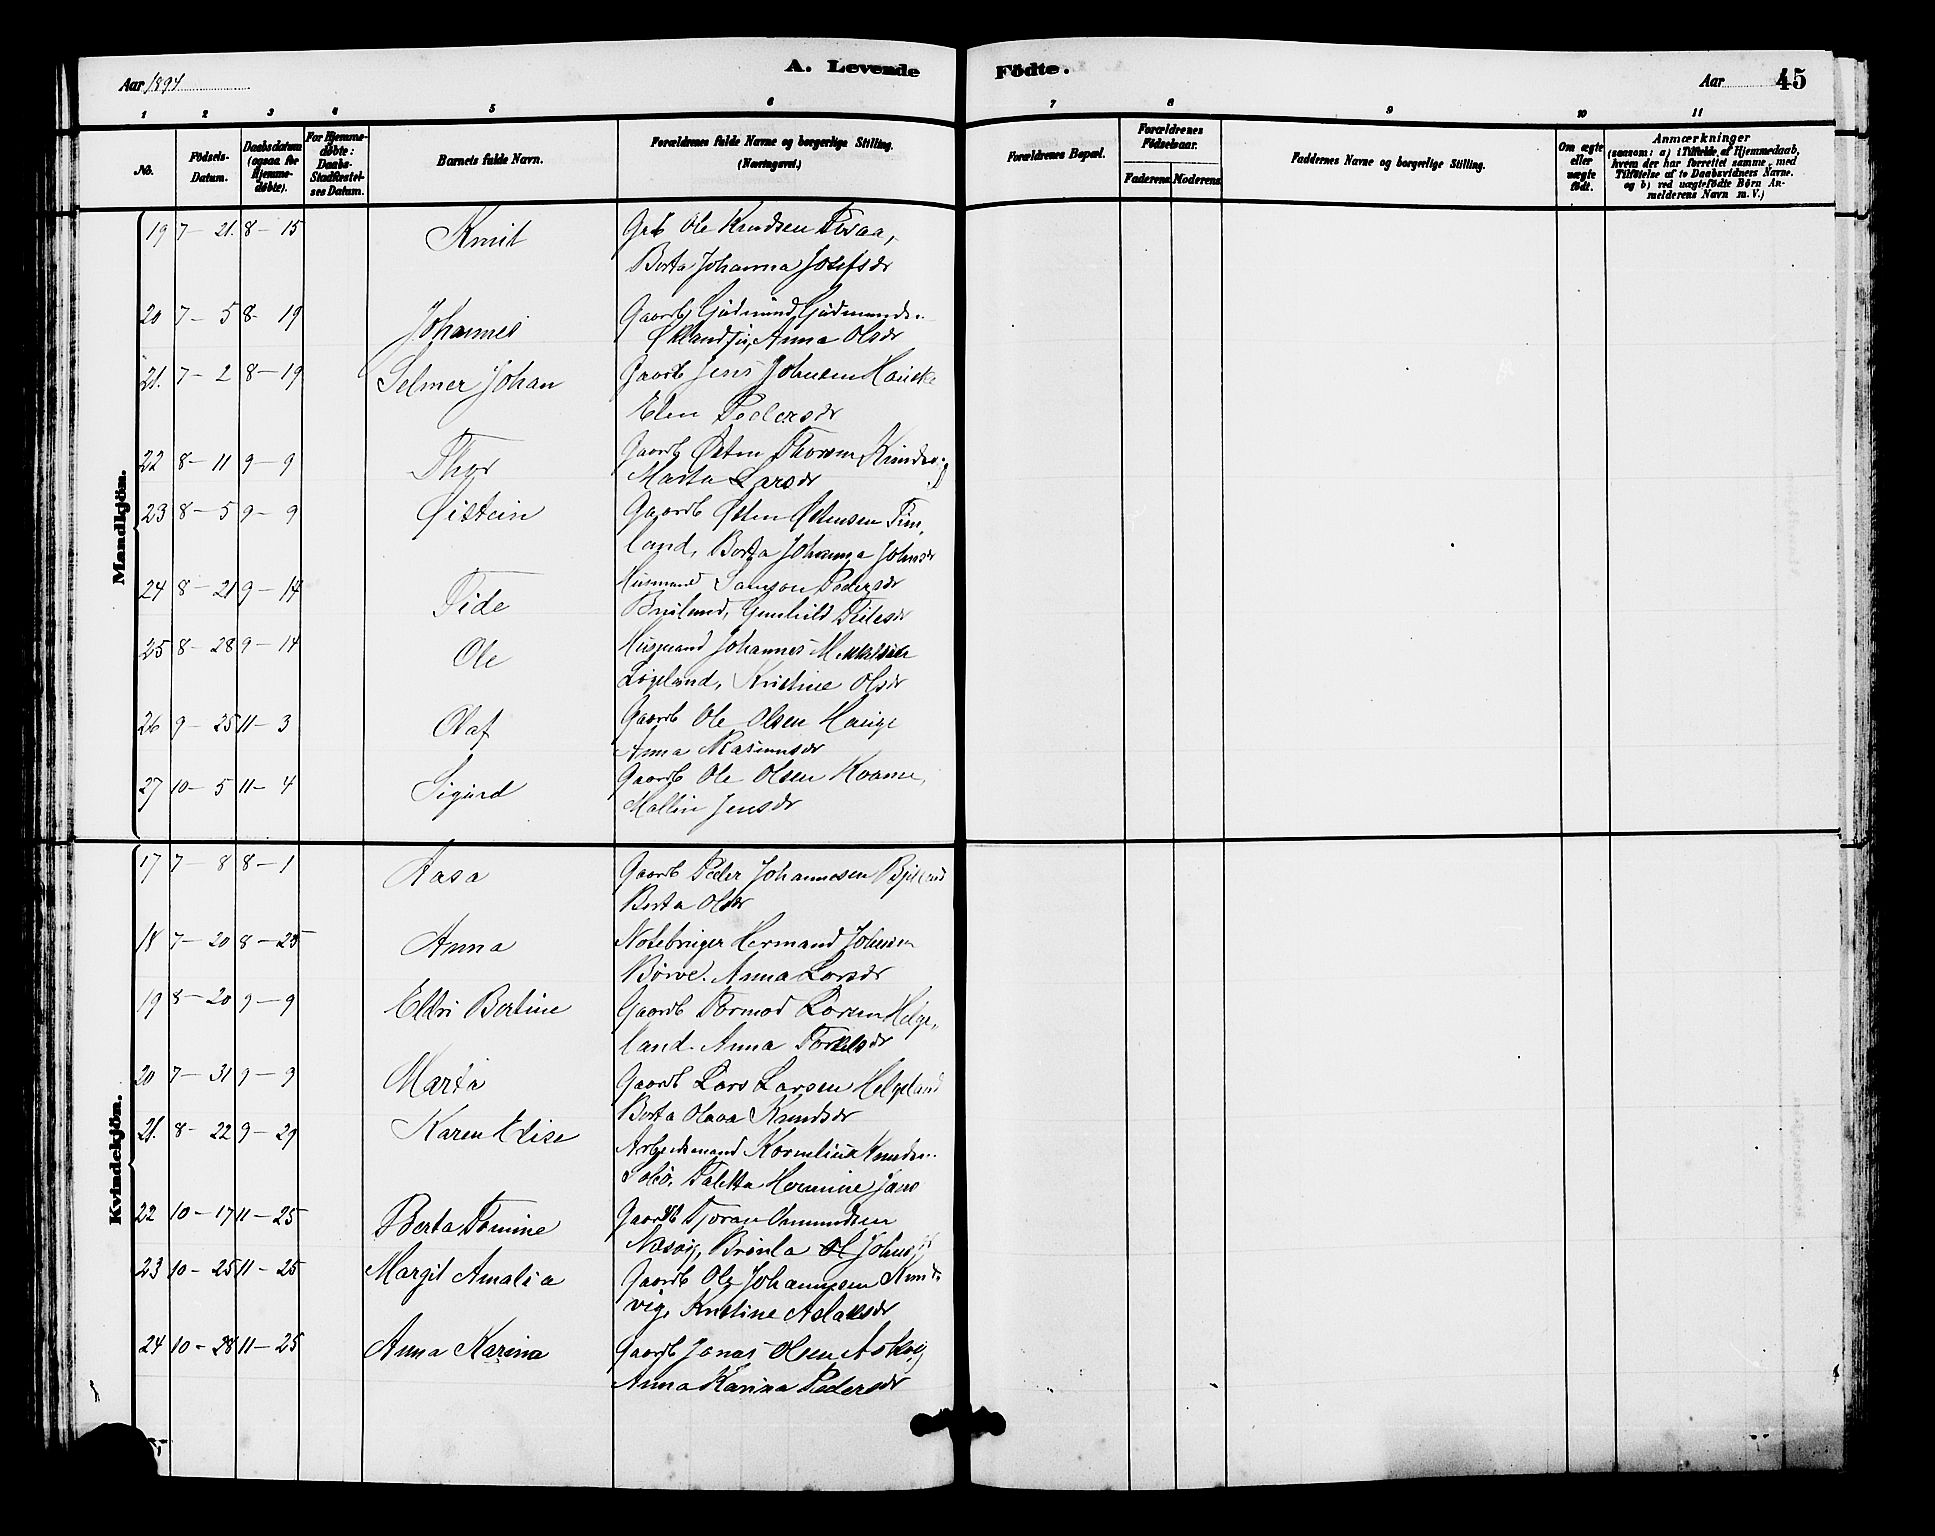 A. Levende
Födte.
Aar 1894
Aar 45
1 2 3 4 5 6 7 8 9 10 11
No.
Födsels-Datum.
Daabsdatum (ogsaa for Hjemme-døbte).
For Hjemme-døbte: Daabs-Stadfæstel-ses Datum.
Barnets fulde Navn.
Forældrenes fulde Navne og borgerlige Stilling.
(Næringsvei.)
Forældrenes Bopæl.
Forældrenes Födselsaar.
Faderens. Moderens.
Faddernes Navne og borgerlige Stilling.
Om ægte eller uægte født.
Anmærkninger
(saasom: a) i Tilfælde af Hjemmedaab,
hvem der har forrettet samme, med
Tilföielse af to Daabsvidners Navne.
og b) ved uægtefödte Börn An-
melderens Navn m. V.)
Mandkjön.
19 7-21. 8-15 Knut Grb Ole Knudsen
Berta Johanna Josefsdr
20 7-5 8-19 Johannes Gaardb Gudmund Gudmunds.
Anna Olsdr
21. 7-2 8-19 Selmer Johan Gaardb Jens Johnsen
Elen Pedersdr
22 8-11 9-9 Thor Gaardb Østen Thorsen
Marta Larsdr
23 8-5 9-9 Øistein Gaardb Østen Østensen Tim
land, Berta Johanna Johnsdr
24 8-21 9-14 Tide Husmand Samson
Gunhild
25 8-28 9-14 Ole Husmand Johannes
Kristine Olsdr
26 9-25 11-3 Olaf Gaardb Ole Olsen Hauge
Anna Rasmusdr
27 10-5 11-4 Sigurd Gaardb Ole Olsen Kvame,
Mallin Jensdr
Kvindekjön.
17 7-8 8-1 Aasa Gaardb Peder Johannesen
Berta Olsdr
18 7-20 8-25 Anna Hermand Johnsen
Børve. Anna Larsdr
19 8-20 9-9 Eldri Bertine Gaardb Tormod Larsen Helge
land. Anna Torkelsdr
20 7-31 9-9 Marta Gaardb Lars Larsen Helgeland
Berta Olava Knudsdr
21. 8-22 9-29 Karen Elise Arbeidsmand Kornelius Knudsen
Hermine
22 10-17 11-25 Berta Tomine Gaardb Osmundsen
23 10-25 11-25 Margit Amalia Gaardb Ole Johannesen
vig, Kristine Aslaksdr
24 10-28 11-25 Anna Karina Gaardb Jonas Olsen Askvig
Anna Karina Pedersdr